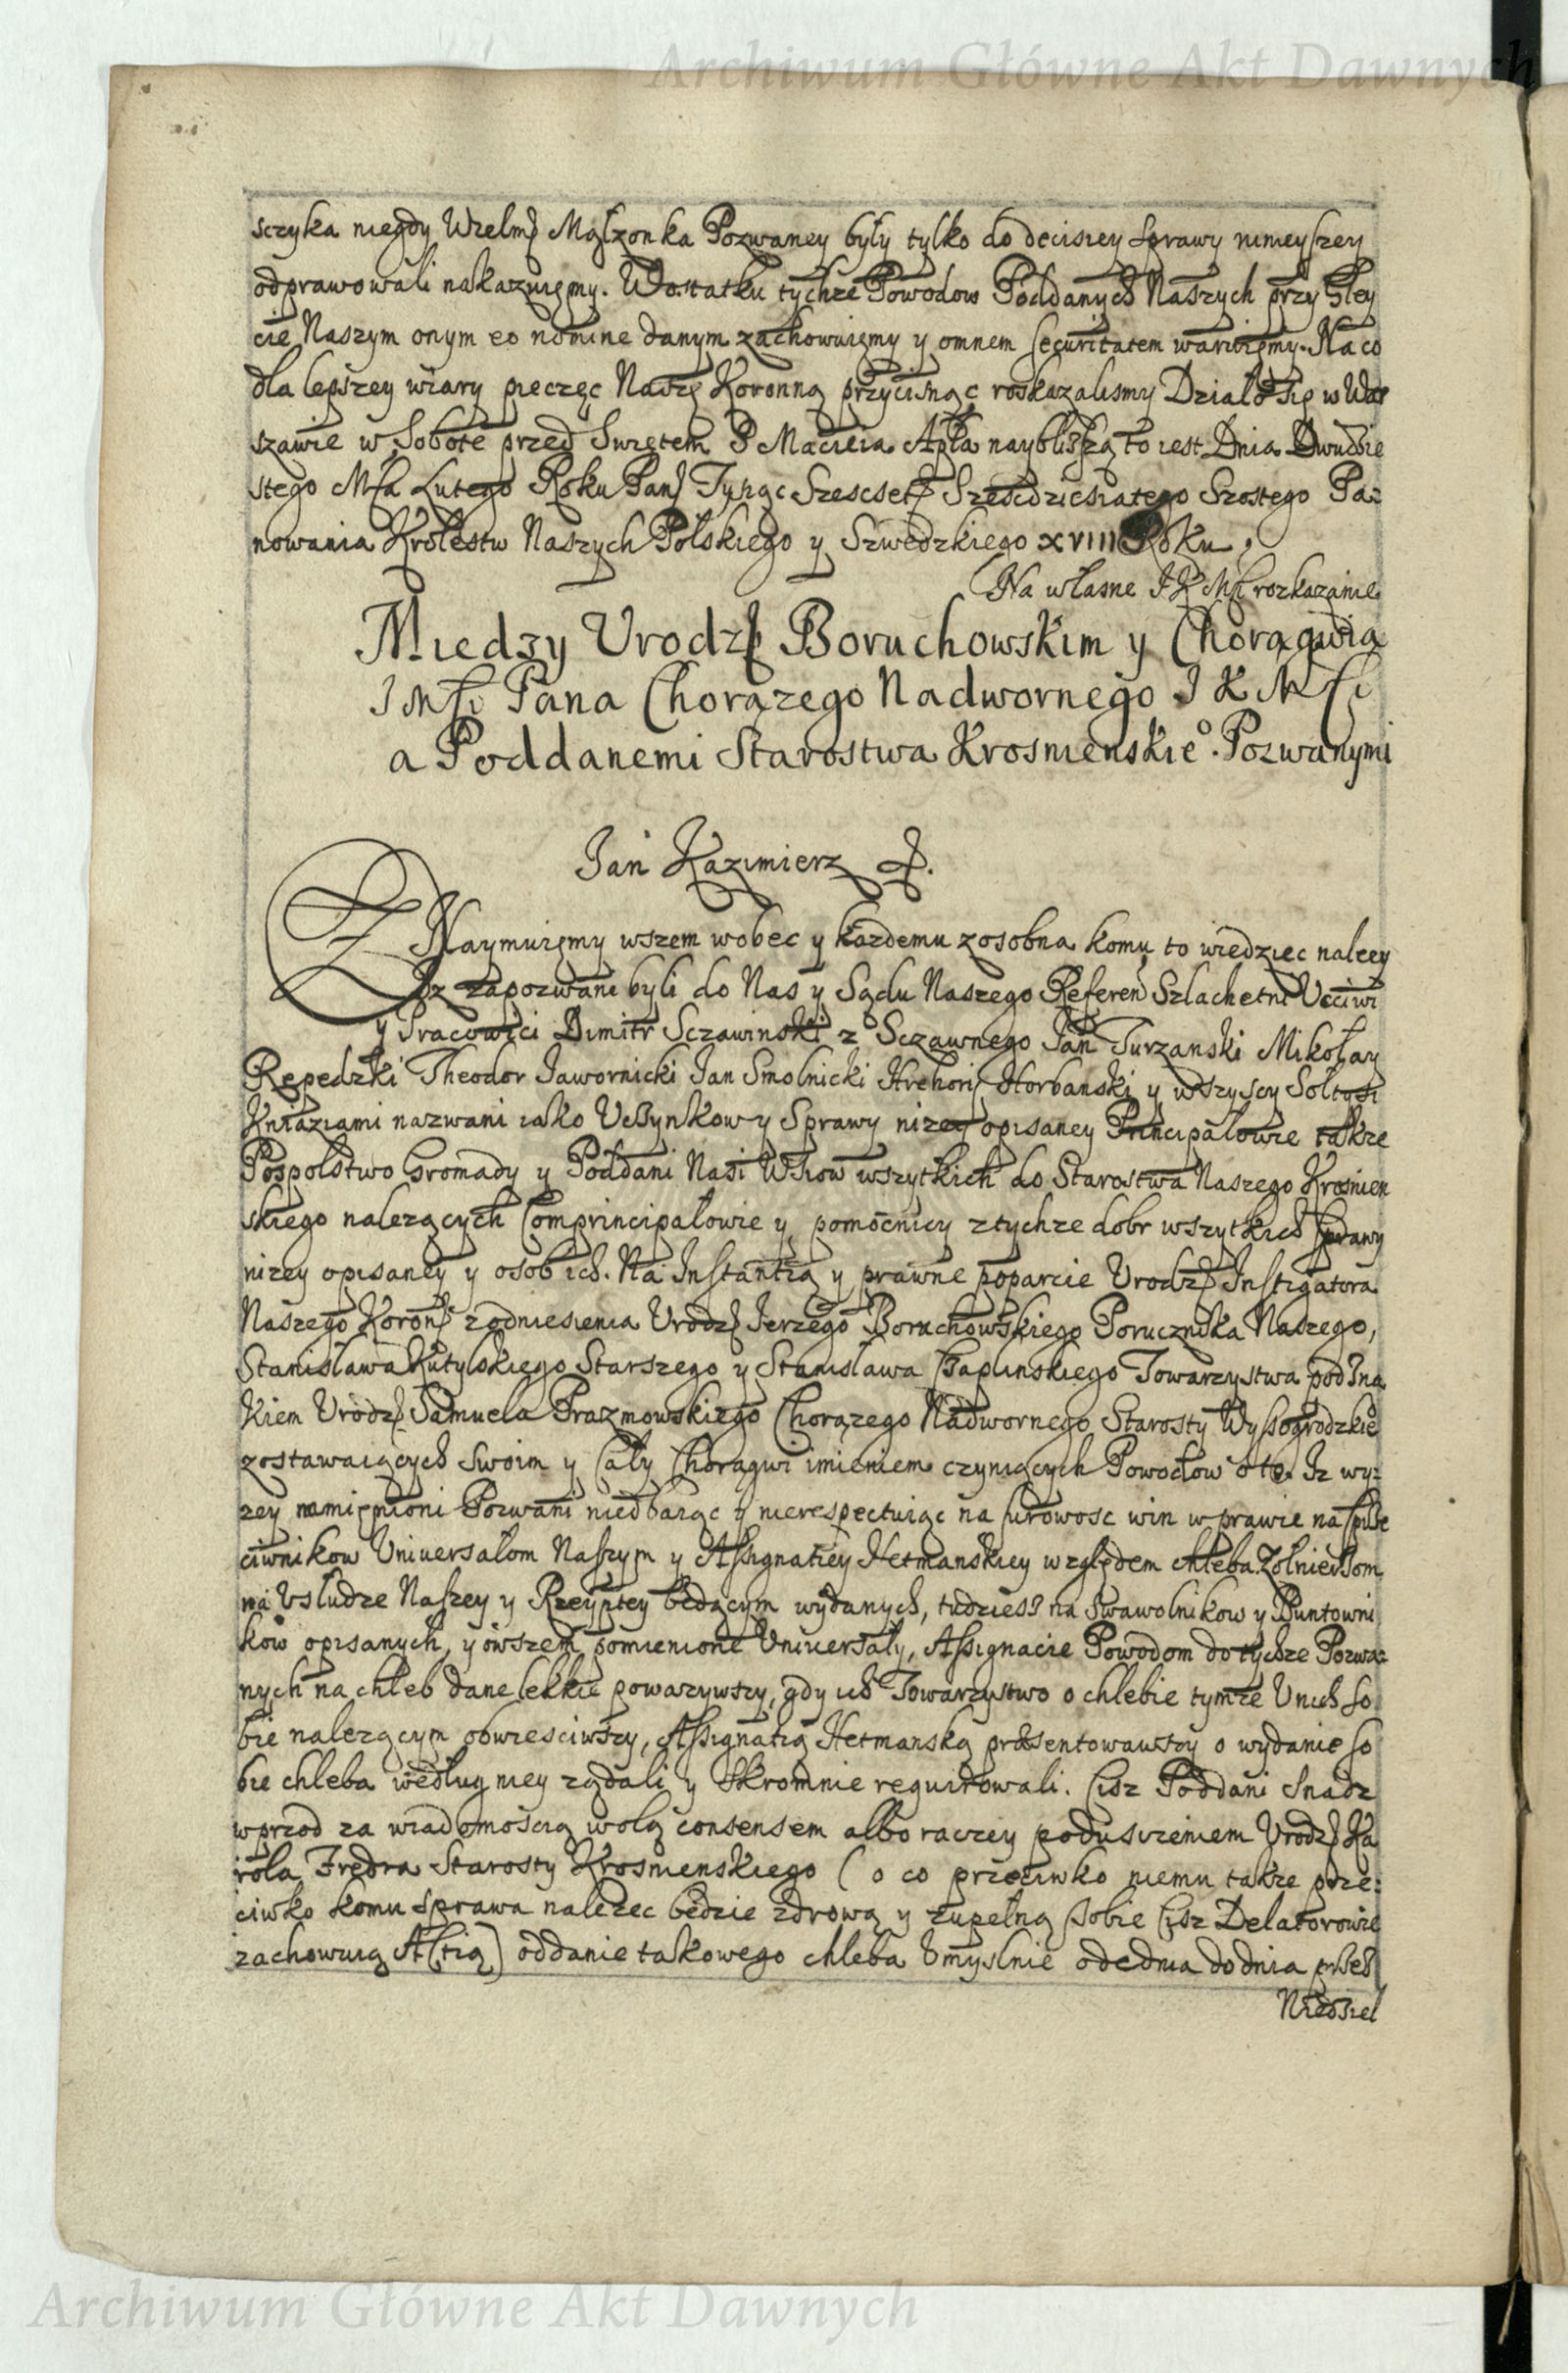 Archiwum Główne Akt Dawnych
sczyka niegdy Wielmż Małżonka Pozwaney były tylko do decisiey sprawy ninieyszey
odprawowali nakazuięmy. Wostatku tychże Powodow Poddanych Naszych przy Gley
cie Naszym onym eo nomine danym zachowuięmy y omnem securitatem waruięmy. Na co
dla lepszey wiary pieczęc Naszę Koronną przycisnąc roskazalismy Działo się w War
szawie w Sobotę przed Swiętem S Macieia Apła naybliszszą to iest Dnia Dwudzie
stego Msca Lutego Roku Pans Tysiąc Szescset Szescdziesiatego Szostego Pa=
nowania Krolestw Naszych Polskiego y Szwedzkiego XVIII Roku.
Na własne J K Msci rozkazanie
Miedzy Vrodz Boruchowskim y Chorągwią
J Msci Pana Chorązego Nadwornego J K Msci
a Poddanemi Starostwa Krosnienskie⁰. Pozwanymi
Jan Kazimierz
ZNaymuięmy wszem wobec y kazdemu zosobna komu to wiedziec nalezy
Iz zapozwani byli do Nas y Sądu Naszego Referen Szlachetni Vcciwi
y Pracowici Dimitr Sczawinski z Sczawnego Jan Turzanski Mikołay
Repedzki Theodor Jawornicki Jan Smolnicki Hrehori Horbanski y wszyscy Soltysi
Kniaziami nazwani iako Vczynkow y Sprawy nizey opisaney Principałowie takze
Pospolstwo Gromady y Poddani Nasi Wsiow wszytkich do Starostwa Naszego Krosnien
skiego nalezących Comprincipałowie y pomocnicy ztychze dobr wszytkich sprawy
nizey opisaney y osob ich. Na Instantią y prawne poparcie Vrodz Instigatora
Naszego Koron zodniesienia Vrodz Jerzego Boruchowskiego Porucznika Naszego,
Stanisława Kutylskiego Starszego y Stanisława Czaplinskiego Towarzystwa pod Zna
kiem Vrodz Samuela Prazmowskiego Chorązego Nadwornego Starosty Wyssogrodzkie⁰
zostawaiących swoim y Cały Chorągwi imieniem czyniących Powodow o to. Iz wy=
zey mianięnioni Pozwani niedbaiąc y nierespectuiąc na surowosc win w prawie na sprze
ciwnikow Vniuersałom Naszym y Assignatiey Hetmanskiey względem chleba Zołnierzom
na Vsłudze Naszey y Rzeyptey będącym wydanych, tudziesz na Swawolnikow y Buntowni
kow opisanych, y owszem pomienione Vniuersały, Assignacie Powodom do tychze Pozwa=
nych na chleb dane lekkie powazywszy, gdy ich Towarzystwo o chlebie tymze Vnich so
bie nalezącym obwiesciwszy, Assignatią Hetmanską præsentowawszy o wydanie so
bie chleba według niey ządali y skromnie requirowali. Cisz Poddani snadz
wprzod za wiadomoscią wolą consensem albo raczey poduszczeniem Vrodz Ka
rola Fredra Starosty Krosnienskiego (o co przeciwko niemu takze prze=
ciwko komu sprawa nalezec będzie zdrową y zupełną sobie Cisz Delatorowie
zachowuią Actią) oddanie takowego chleba Vmyslnie odednia do dnia przesz
Niedziel
Archiwum Główne Akt Dawnych